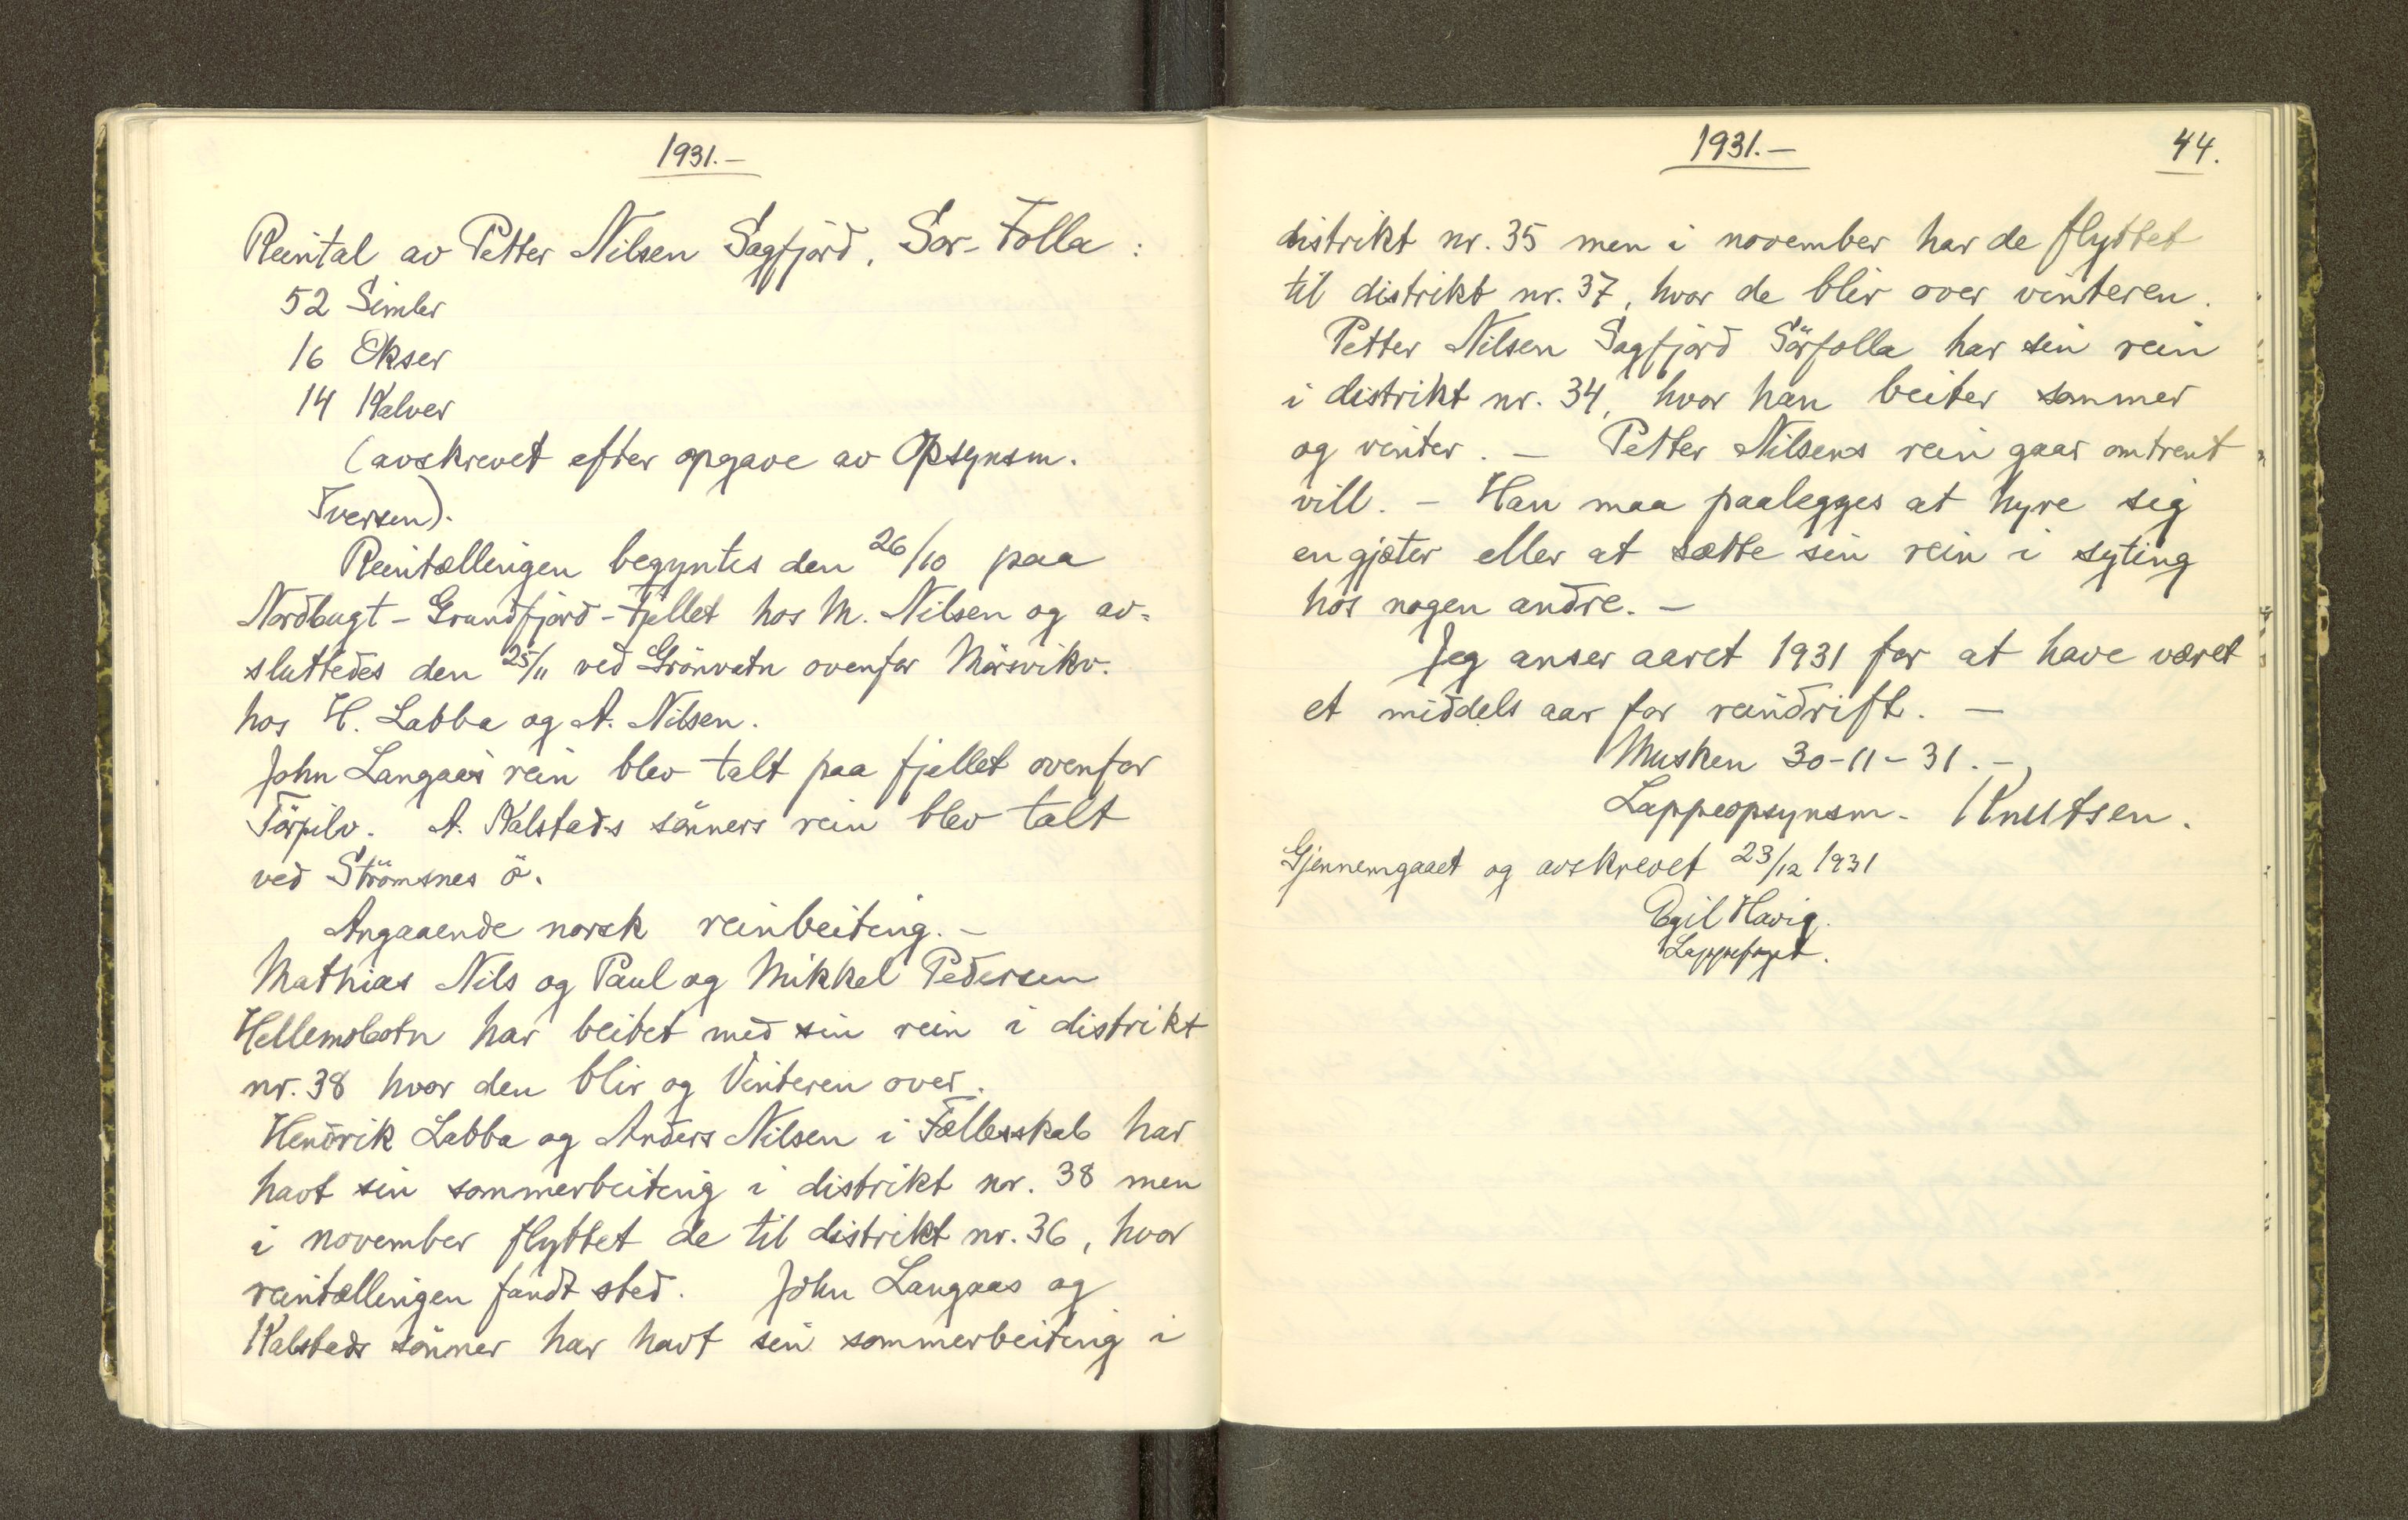 1931.-
Reintal av Petter Nilsen Sagfjord, Sör-Folla:
52 Simler
16 Okser
14 Kalver
(avskrevet efter opgave av Opsynsm.
Iversen).
Reintællingen begyntes den 26/10 paa
Nordbugt-Grundfjord-fjellet hos M. Nilsen og av-
sluttedes den 25/11 ved Grönvatn ovenfor Mörsvikv.
hos H. Labba og A. Nilsen.
John Langaas rein blev talt paa fjellet ovenfor
A. Kalstads sönners rein blev talt
ved Strömsnes ö.
Angaaende norsk reinbeiting.-
Mathias Nils og Paul og Mikkel Pedersen
Hellemobotn har beitet med sin rein i distrikt
nr. 38 hvor den blir og Vinteren over.
Hendrik Labba og Anders Nilsen i Fællesskab har
havt sin sommerbeiting i distrikt nr. 38 men
i november flyttet de til distrikt nr. 36, hvor
reintællingen fandt sted. John Langaas og
Kalstads sönner har havt sin sommerbeiting i
1931.-
44.
distrikt nr. 35 men i november har de flyttet
til distrikt nr. 37, hvor de blir over vinteren.
Petter Nilsen Sagfjord Sörfolla har sin rein
i distrikt nr. 34, hvor han beiter sommer
og vinter. - Petter Nilsens rein gaar omtrent
vill. - Han maa paalegges at hyre sig
en gjæter eller at sætte sin rein i syting
hos nogen andre. -
Jeg anser aaret 1931 for at have været
et middels aar for reindrift. -
Musken 30-11-31.-
Lappeopsynsm. Knutsen.
Gjennemgaaet og avskrevet 23/12 1931
Egil Havig.
Lappefogt.